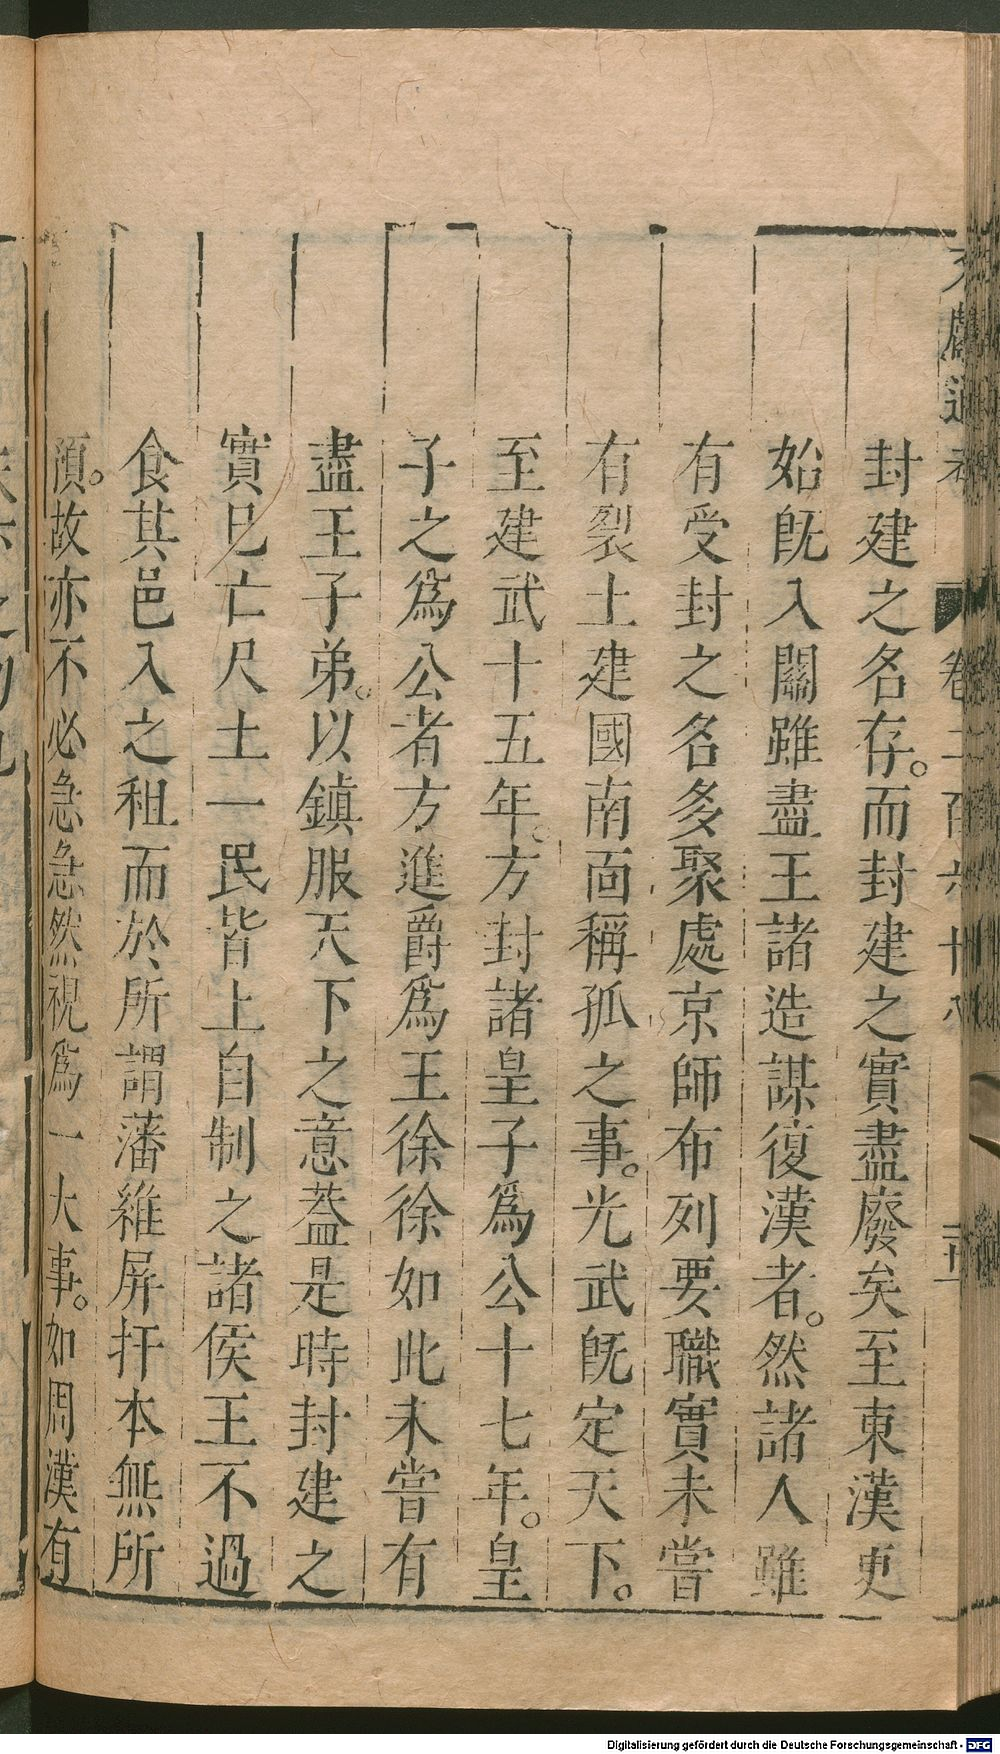 封建之名存。而封建之實盡廢矣至東漢更
始旣入關雖盡王諸造謀復漢者。然諸人雖
有受封之名多聚處京師布列要職實未嘗
有裂土建國南面稱孤之事。光武旣定天下。
至建武十五年。方封諸皇子爲公十七年。皇
子之爲公者方進爵爲王徐徐如此未嘗有
盡王子弟。以鎮服天下之意葢是時封建之
實已亡尺土一民皆上自制之諸侯王不過
食其邑入之租而於所謂藩維屏扞本無所
預。故亦不必急急然視爲一大事。如周漢有
Digitalisierung gefördert durch die Deutsche Forschungsgemeinschaft - DFG